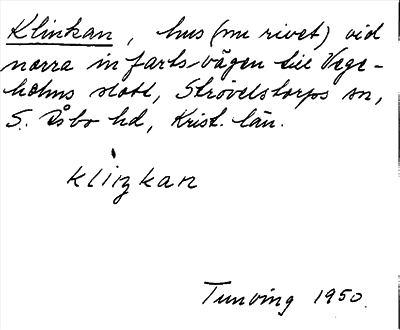 Klinkan, hus (nu rivet) vid
norra infarts-vägen till Vege-
holms slott, Strövelstorps sn,
S. Åsbo hd, Krist. län.
kliŋkan
Tunving 1950.